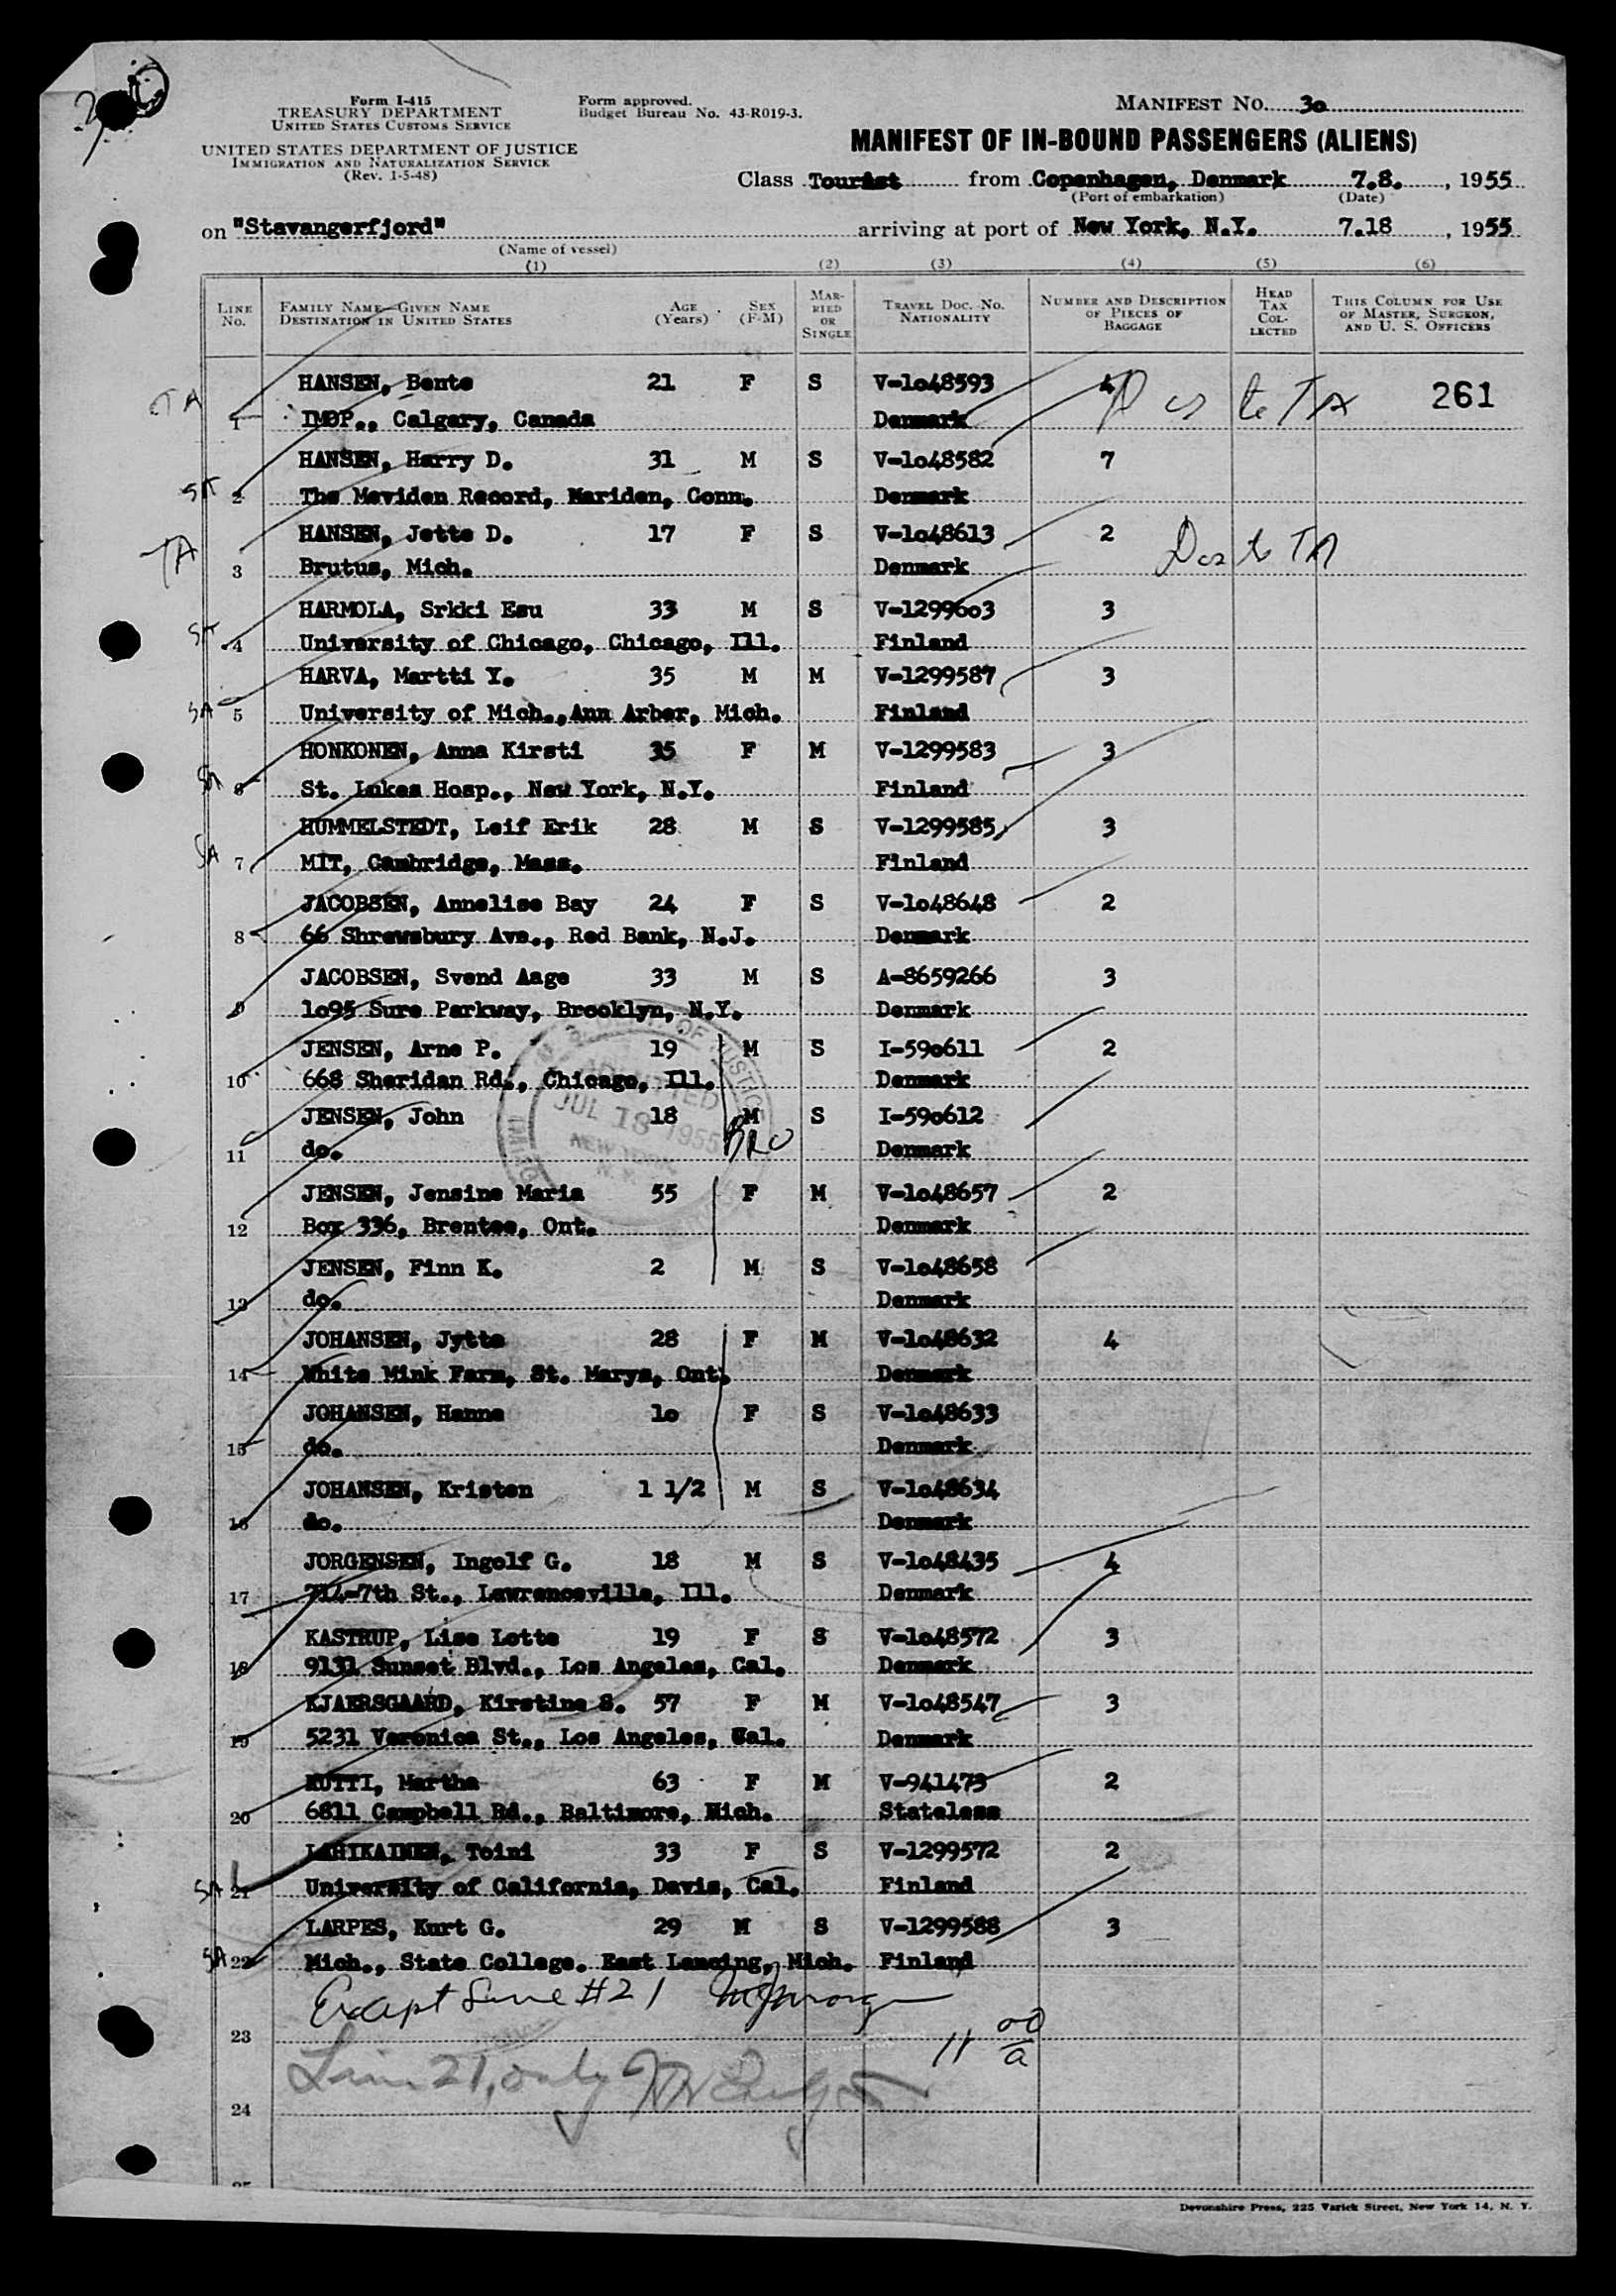 Form I-415
TREASURY DEPARTMENT
UNITED STATES CUSTOMS SERVICE
UNITED STATES DEPARTMENT OF JUSTICE
IMMIGRATION AND NATURALIZATION SERVICE
(Rev. 1-5-48)
Form approved.
Budget Bureau No. 43-R019-3.
MANIFEST NO. 30
MANIFEST OF IN-BOUND PASSENGERS (ALIENS)
Class Tourist from Copenhagen, Denmark 7.8. , 1955
(Port of embarkation) (Date)
on "Stavangerfjord" arriving at port of New York, N.Y. 7.18 , 1955
(Name of vessel)
(1) (2) (3) (4) (5) (6)
LINE No. FAMILY NAME—GIVEN NAME DESTINATION IN UNITED STATES AGE (Years) SEX (F-M) MARRIED OR SINGLE TRAVEL DOC. NO. NATIONALITY NUMBER AND DESCRIPTION OF PIECES OF BAGGAGE HEAD TAX COLLECTED THIS COLUMN FOR USE OF MASTER, SURGEON, AND U. S. OFFICERS
HANSEN, Bente 21 F S V-1o48593 4 261
TA 1 IMOP., Calgary, Canada Denmark
HANSEN, Harry D. 31 M S V-1o48582 7
2 The Meviden Record, Mariden, Conn. Denmark
HANSEN, Jette D. 17 F S V-1o48613 2
TA 3 Brutus, Mich. Denmark
HARMOLA, Srkki Esu 33 M S V-12996o3 3
4 University of Chicago, Chicago, Ill. Finland
HARVA, Martti Y. 35 M M V-1299587 3
SA 5 University of Mich.,Ann Arber, Mich. Finland
HONKONEN, Anna Kirsti 35 F M V-1299583 3
SA 6 St. Lukes Hosp., New York, N.Y. Finland
HUMMELSTEDT, Leif Erik 28 M S V-1299585 3
SA 7 MIT, Cambridge, Mass. Finland
JACOBSEN, Annelise Bay 24 F S V-1o48648 2
8 66 Shrewsbury Ave., Red Bank, N.J. Denmark
JACOBSEN, Svend Aage 33 M S A-8659266 3
9 1o95 Sure Parkway, Brooklyn, N.Y. Denmark
JENSEN, Arne P. 19 M S I-59o611 2
10 668 Sheridan Rd., Chicago, Ill. Denmark
JENSEN, John 18 M S I-59o612
11 do. BRO Denmark
ADMITTED
JUL 18 1955
NEW YORK
N.Y.
JENSEN, Jensine Maria 55 F M V-1o48657 2
12 Box 336, Brentes, Ont. Denmark
JENSEN, Finn K. 2 M S V-1o48658
13 do. Denmark
JOHANSEN, Jytte 28 F M V-1o48632 4
14 White Mink Farm, St. Marys, Ont. Denmark
JOHANSEN, Hanne 1o F S V-1o48633
15 do. Denmark
JOHANSEN, Kristen 1 1/2 M S V-1o48634
16 do. Denmark
JORGENSEN, Ingolf G. 18 M S V-1o48435 4
17 714-7th St., Lawrenceville, Ill. Denmark
KASTRUP, Lise Lotte 19 F S V-1o48572 3
18 9131 Sunset Blvd., Los Angeles, Cal. Denmark
KJAERSGAARD, Kirstine S. 57 F M V-1o48547 3
19 5231 Veronica St., Los Angeles, Cal. Denmark
KUTTI, Martha 63 F M V-941473 2
20 6811 Campbell Rd., Baltimore, Mich. Stateless
LAHIKAINEN, Toini 33 F S V-1299572 2
SA 21 University of California, Davis, Cal. Finland
LARPES, Kurt G. 29 M S V-1299588 3
SA 22 Mich., State College. East Lancing, Mich. Finland
Except Line #21
23 11 00/a
Line 21, only
24
Devonshire Press, 225 Varick Street, New York 14, N. Y.